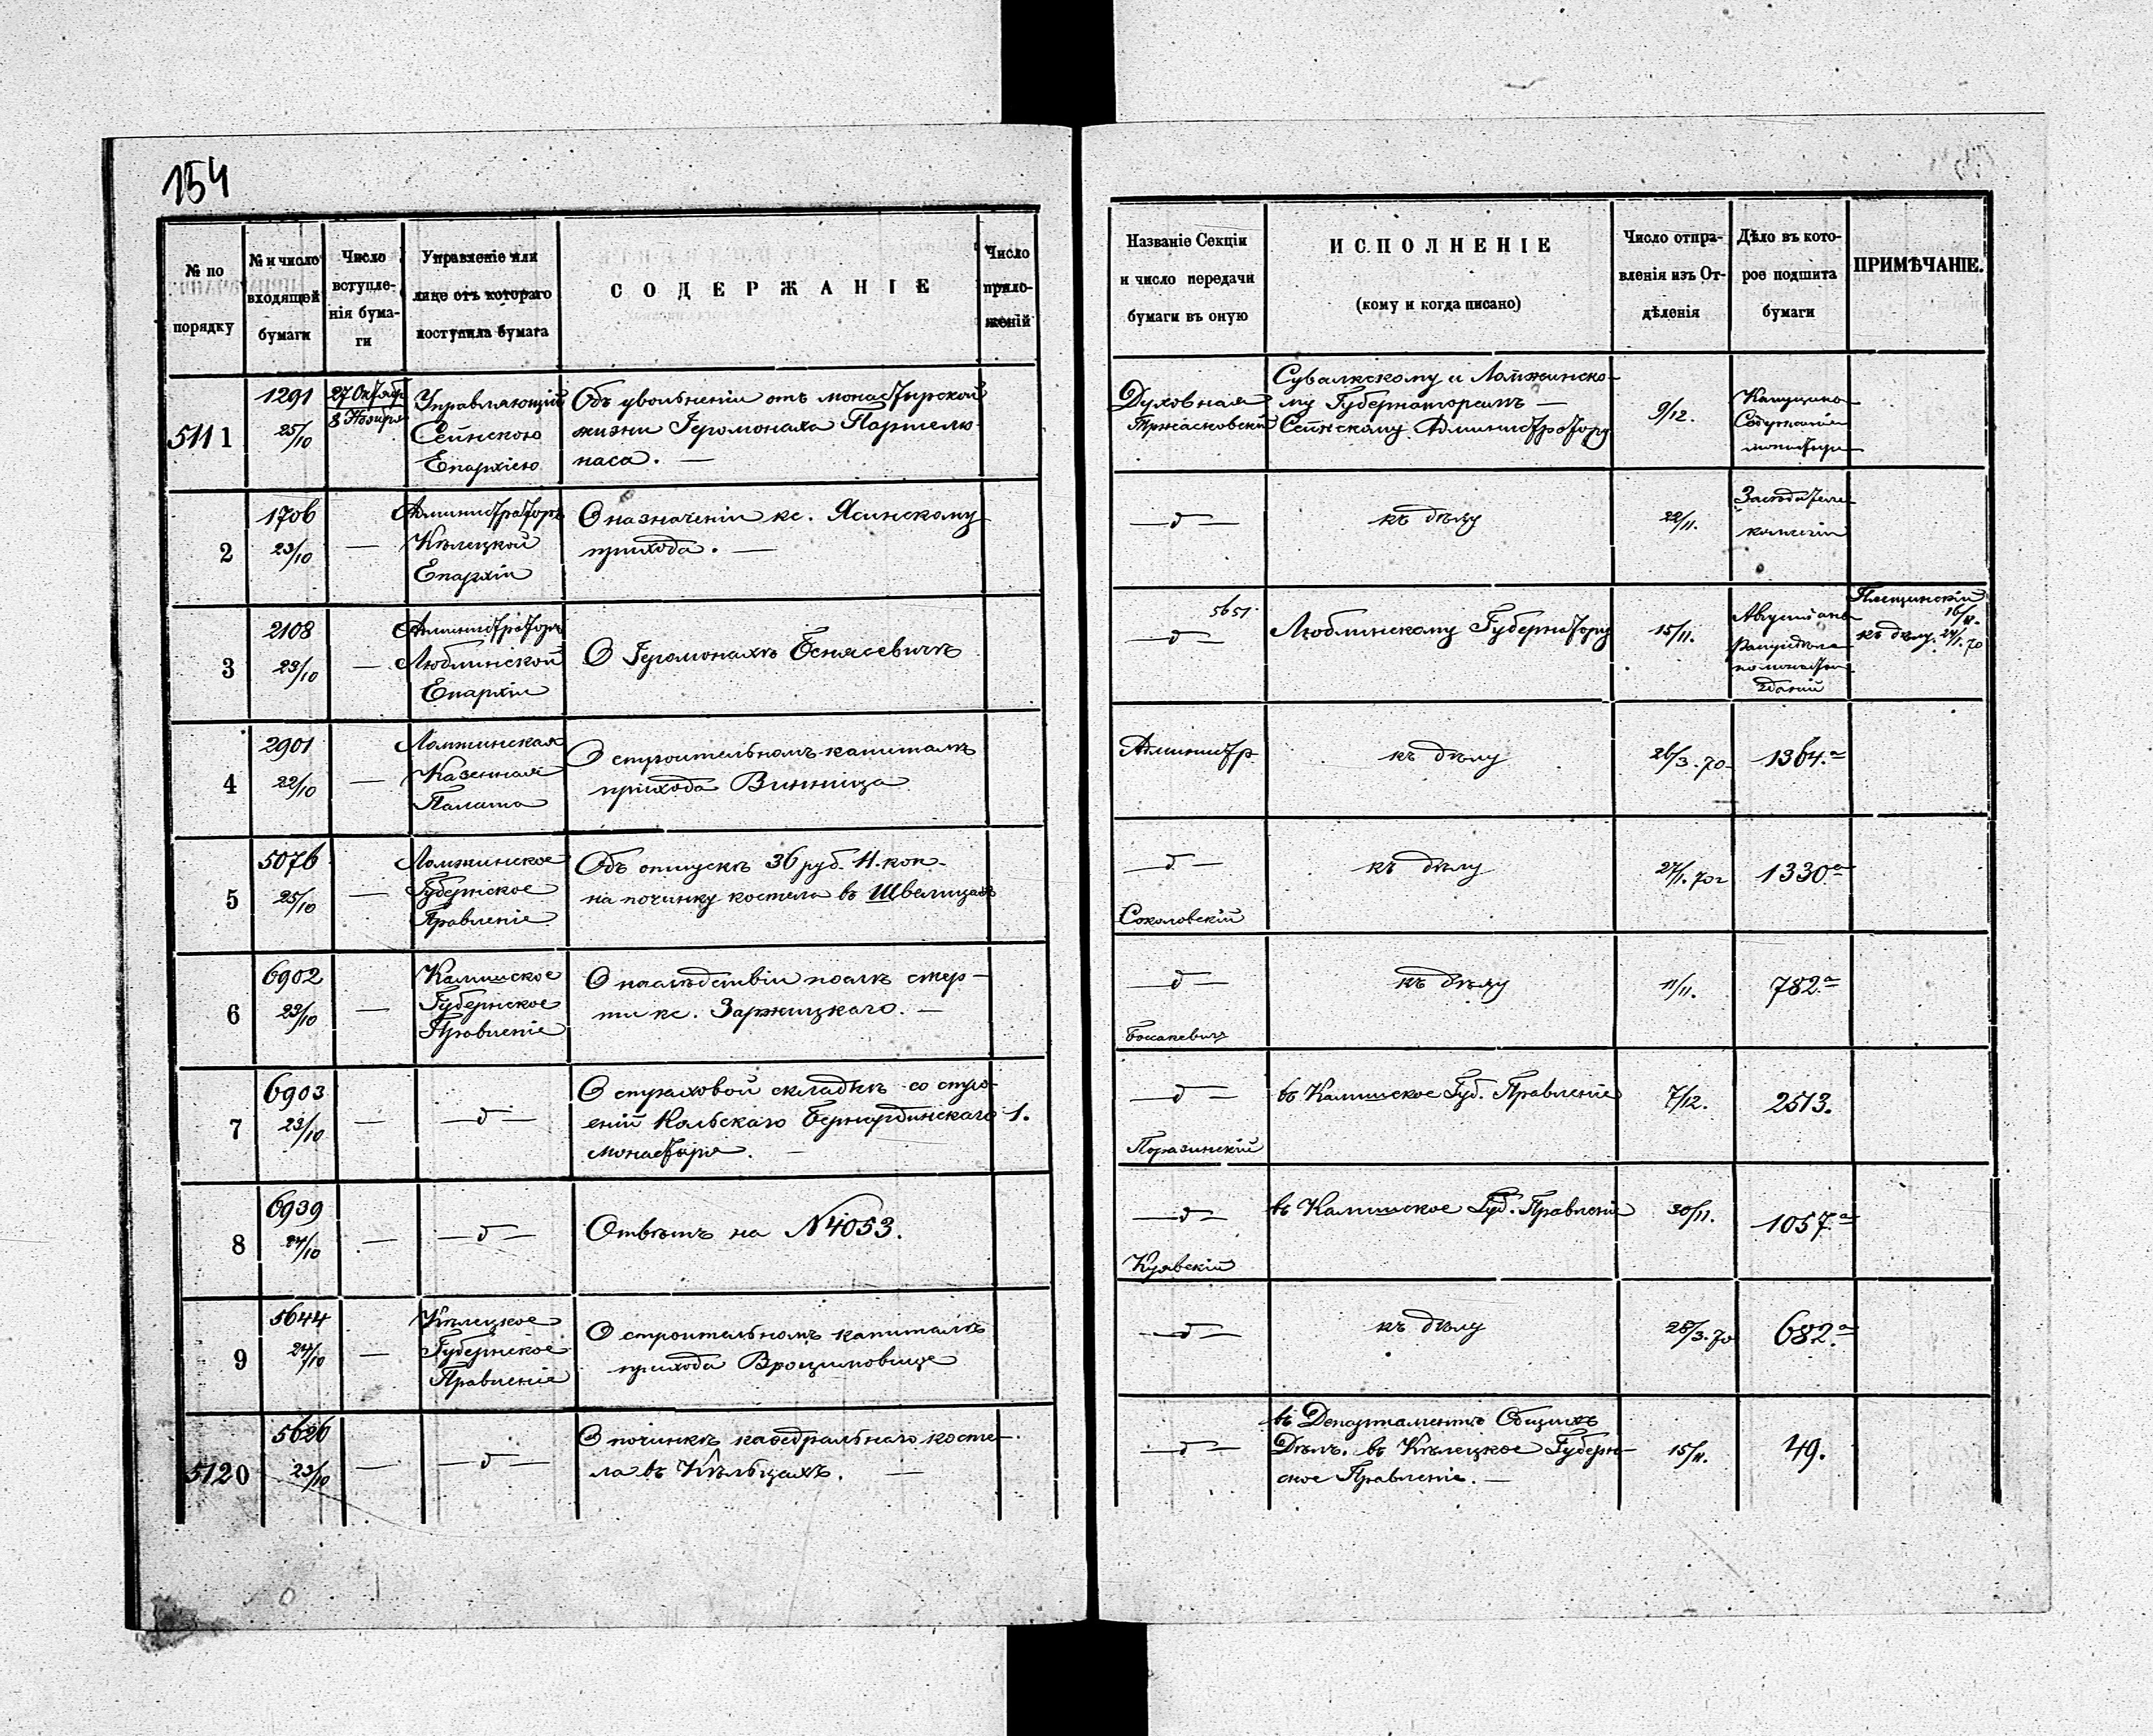 154
№ по порядку
№ и число входящей бумаги
Число вступле-нія бума-ги
Управленіе или лице отъ котораго поступила бумага
СОДЕРЖАНІЕ
Число прило-женій
Названіе Секціи и число передачи бумаги въ оную
ИСПОЛНЕНІЕ
(кому и когда писано)
Число отпра-вленія изъ От-дѣленія
Дѣло въ кото-рое подшита бумаги
ПРИМѢЧАНІЕ.
5111
1291
25/10
27 Октября
8 Ноября
Управляющій
Сейнскою
Епархіею
Объ увольненіи отъ монастырской
жизни Іеромонаха
наса. —
Духовная
Сувалкскому и Ломжинско-
му Губернаторамъ —
Сейнскому Администратору
9/12.
2
1706
23/10
—
Администраторъ
Кѣлецкой
Епархіи
О назначеніи кс. Ясинскому
прихода. —
— д —
къ дѣлу
22/11.
3
2108
23/10
—
Администраторъ
Люблинской
Епархіи
О Іеромонахѣ
5651.
— д —
Люблинскому Губернатору
15/11.
зданій
16/11.
къ дѣлу 24/1. 70
4
2901
22/10
—
Ломжинская
Казенная
Палата
О строительномъ капиталѣ
прихода Винница
Администр
къ дѣлу
26/3. 70
1364.а
5
5076
25/10
—
Ломжинское
Губернское
Правленіе
Объ отпускѣ 36 руб. 11. коп.
на починку костела въ
— д —
Соколовскій
къ дѣлу
27/1. 70 г
1330 а
6
6902
23/10
—
Калишское
Губернское
Правленіе
О наслѣдствіи послѣ смер-
ти кс. Заржицкаго. —
— д —
къ дѣлу
11/11.
782 а
7
6903
23/10
—
— д —
О страховой складкѣ со стро-
еній Кольскаго Бернардинскаго
монастыря. —
1.
— д —
Поразинскій
въ Калишское Губ. Правленіе
7/12.
2513.
8
6939
24/10
—
— д —
Отвѣтъ на N 4053.
— д —
Куявскій
въ Калишское Губ. Правленіе
30/11.
1057 а
9
5644
24/10
—
Кѣлецкое
Губернское
Правленіе
О строительномъ капиталѣ
прихода Вроцимовице
— д —
къ дѣлу
28/3. 70
682 а
5120
5626
23/10
—
— д —
О починкѣ каѳедральнаго косте-
ла въ Кѣльцахъ. —
— д —
въ Департаментъ Общихъ
Дѣлъ. въ Кѣлецкое Губерн-
ское Правленіе. —
15/11.
49.